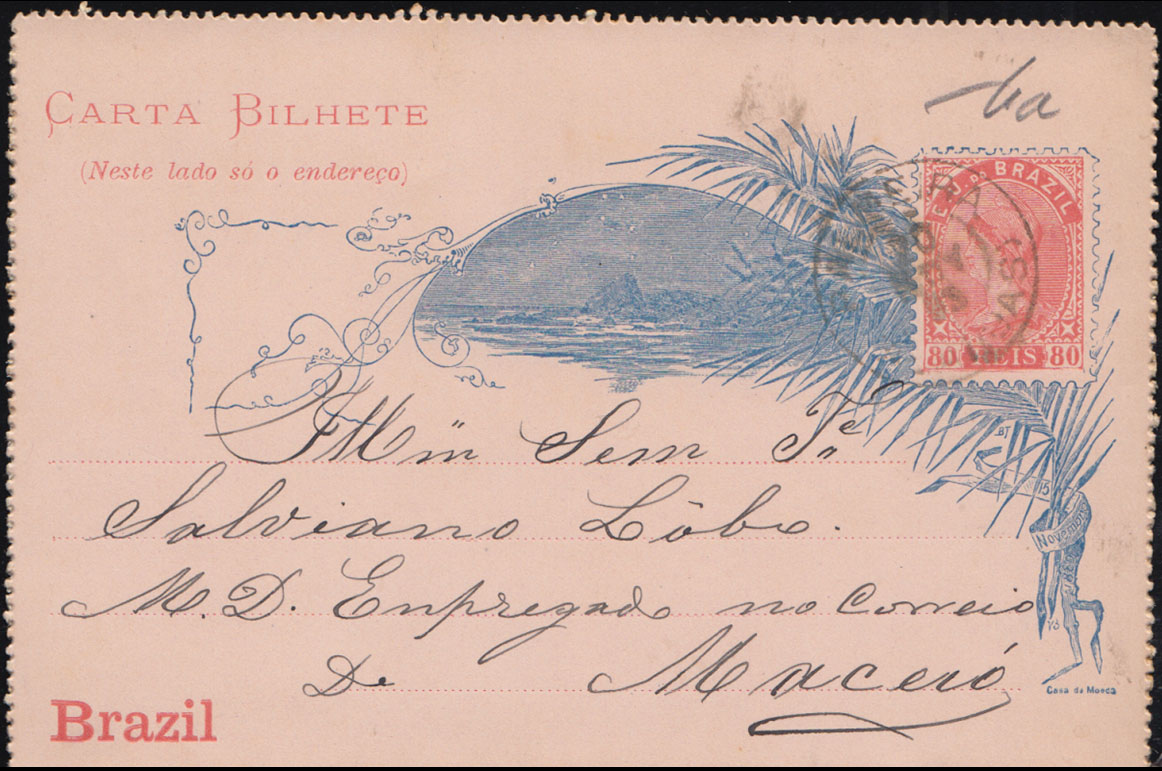 ba
CARTA BILHETE
(Neste lado só o endereço)
E. U. DO BRAZIL
80 REIS 80
Sem
Salviano Lôbo.
M. D. Enpregado no Correio
De Maceió
15
Novembro
Casa da Moeda
Brazil